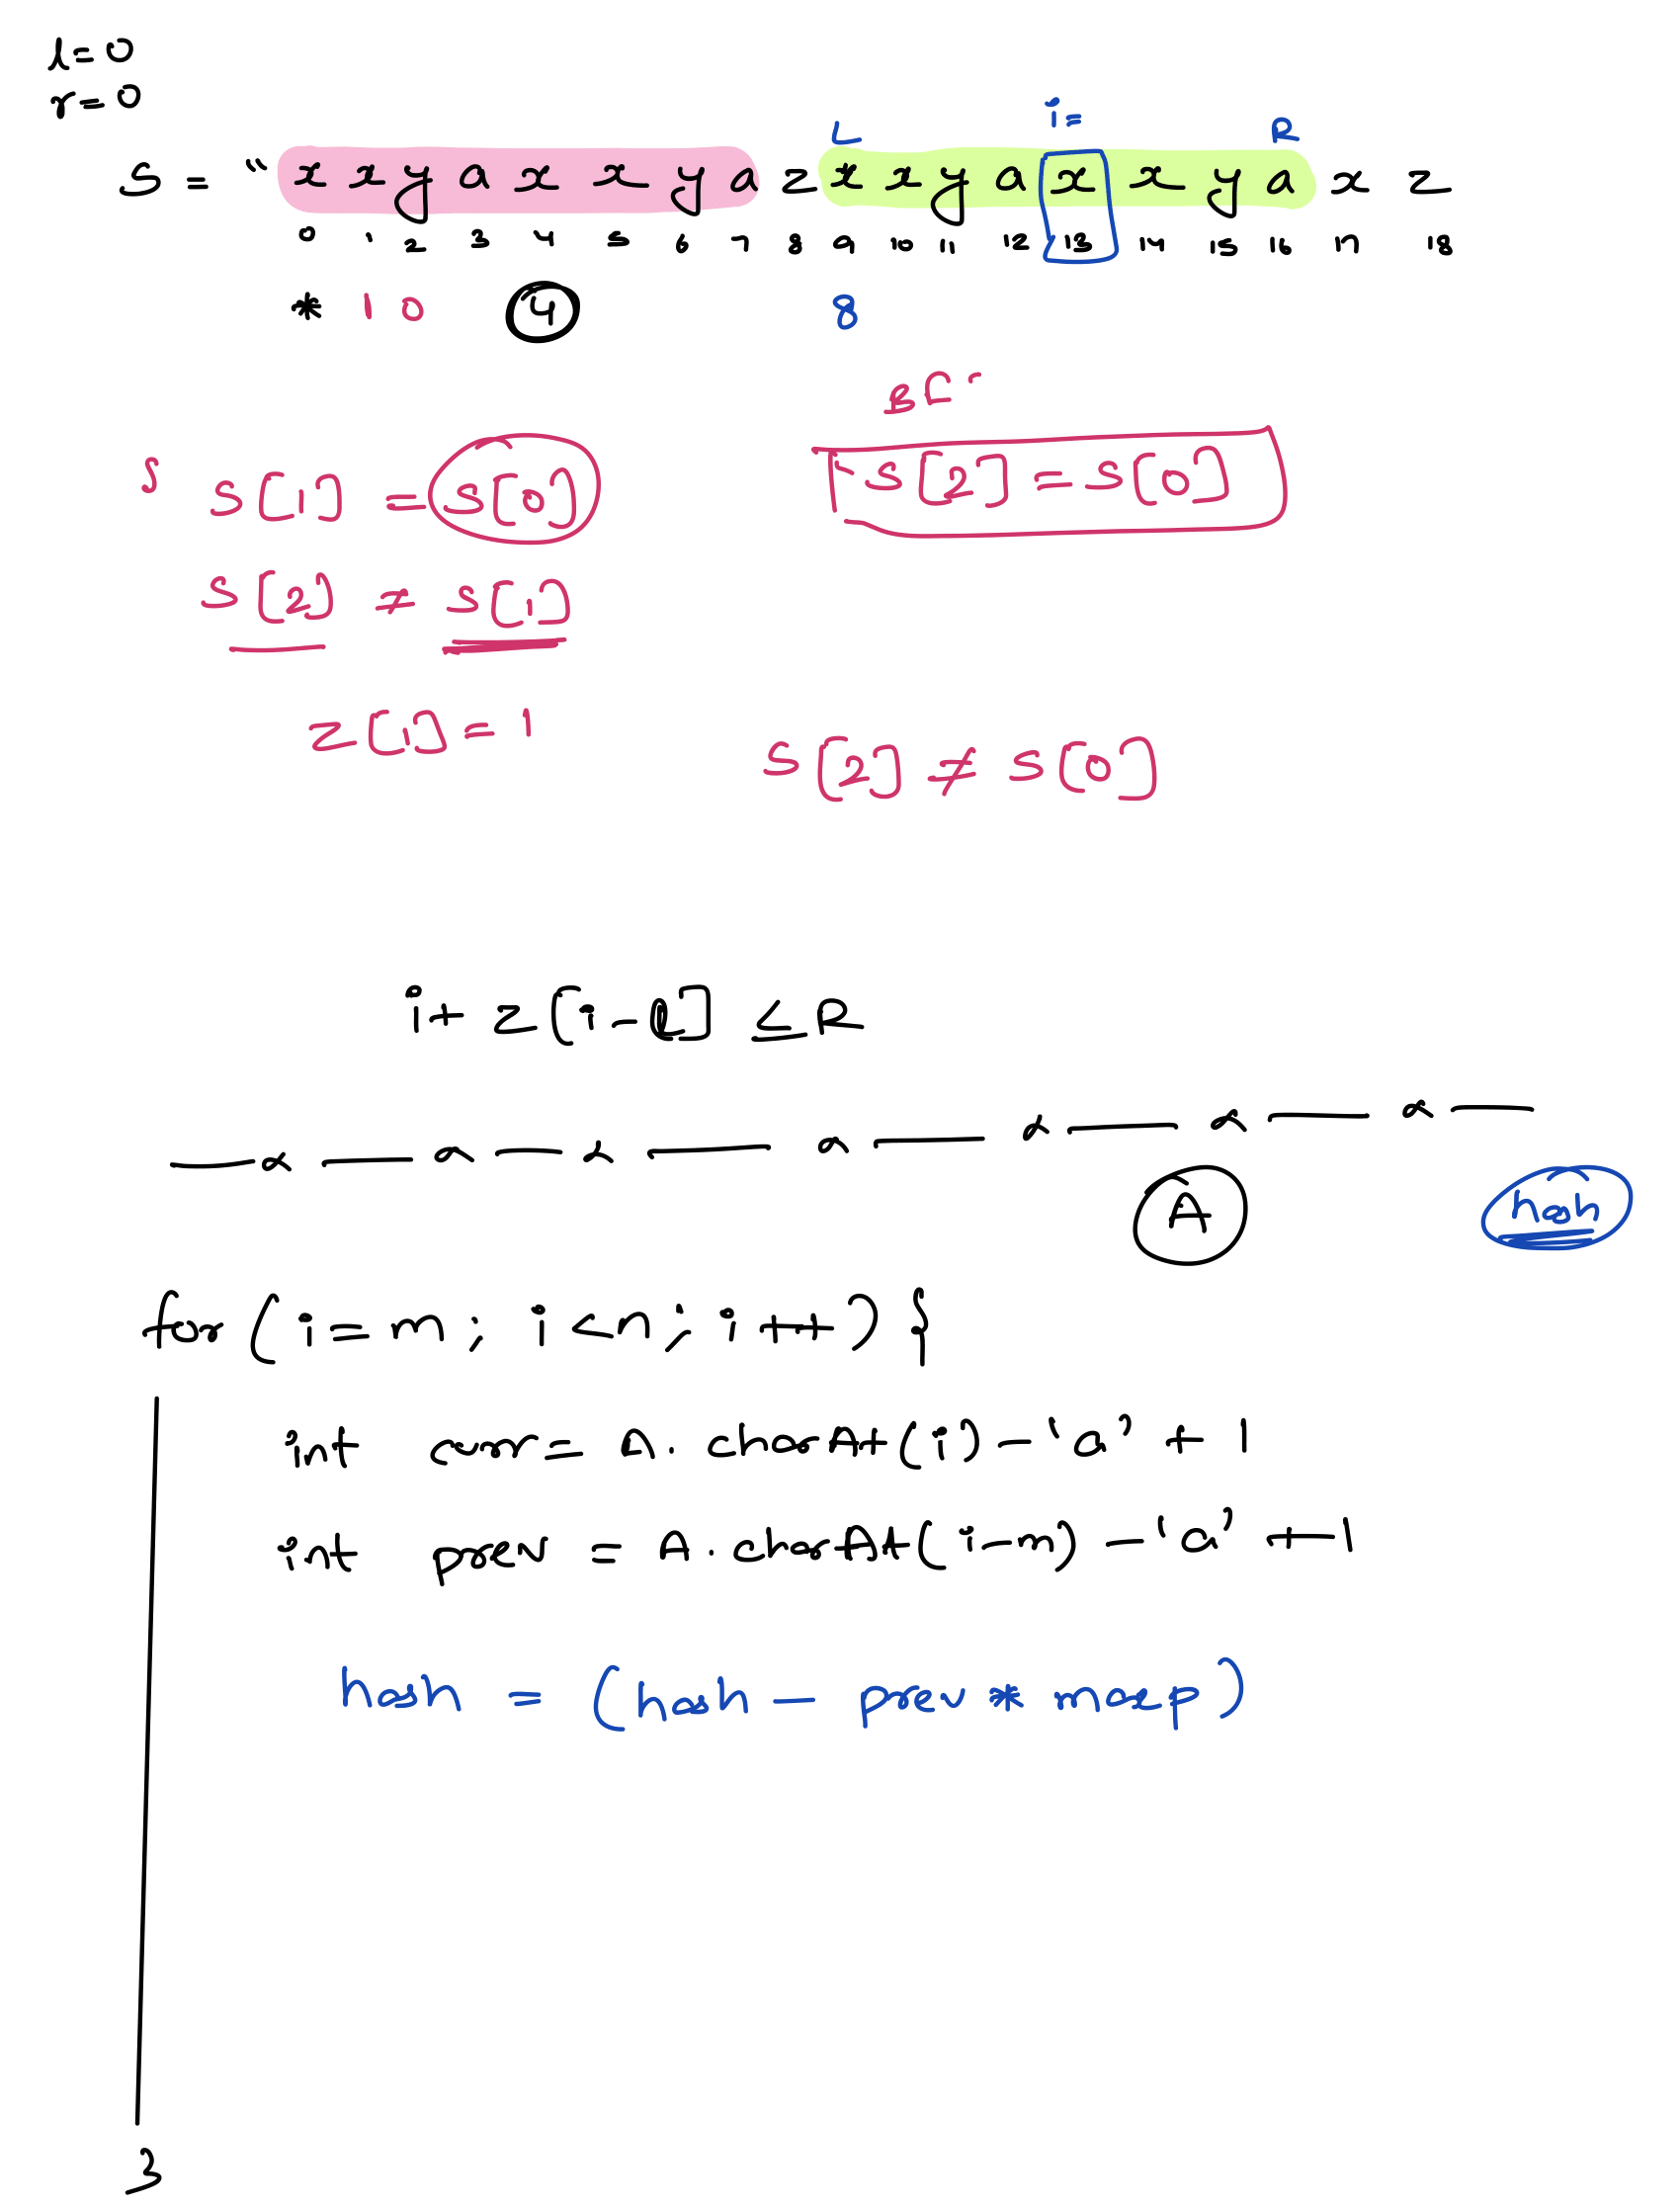 l=0
r=0
L i= R
S = “ x x y a x x y a z x x y a x x y a x z
0 1 2 3 4 5 6 7 8 9 10 11 12 13 14 15 16 17 18
* 1 0 4 8
S[1] = S[0]
S[2] = S[0]
S[2] ≠ S[1]
Z[1] = 1
S[2] ≠ S[0]
i+ z[i-l] ≤ R
A hash
for ( i=m ; i<n ; i++ ) {
int curr= A. charAt(i) - 'a' + 1
int prev = A. charAt(i-m) - 'a' +1
hash = (hash - prev * maxp)
}